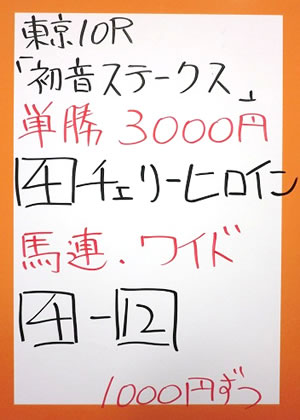 東京10R
「初音ステークス」
単勝 3000円
4 チェリーヒロイン
馬連.ワイド
4-12
1000円ずつ